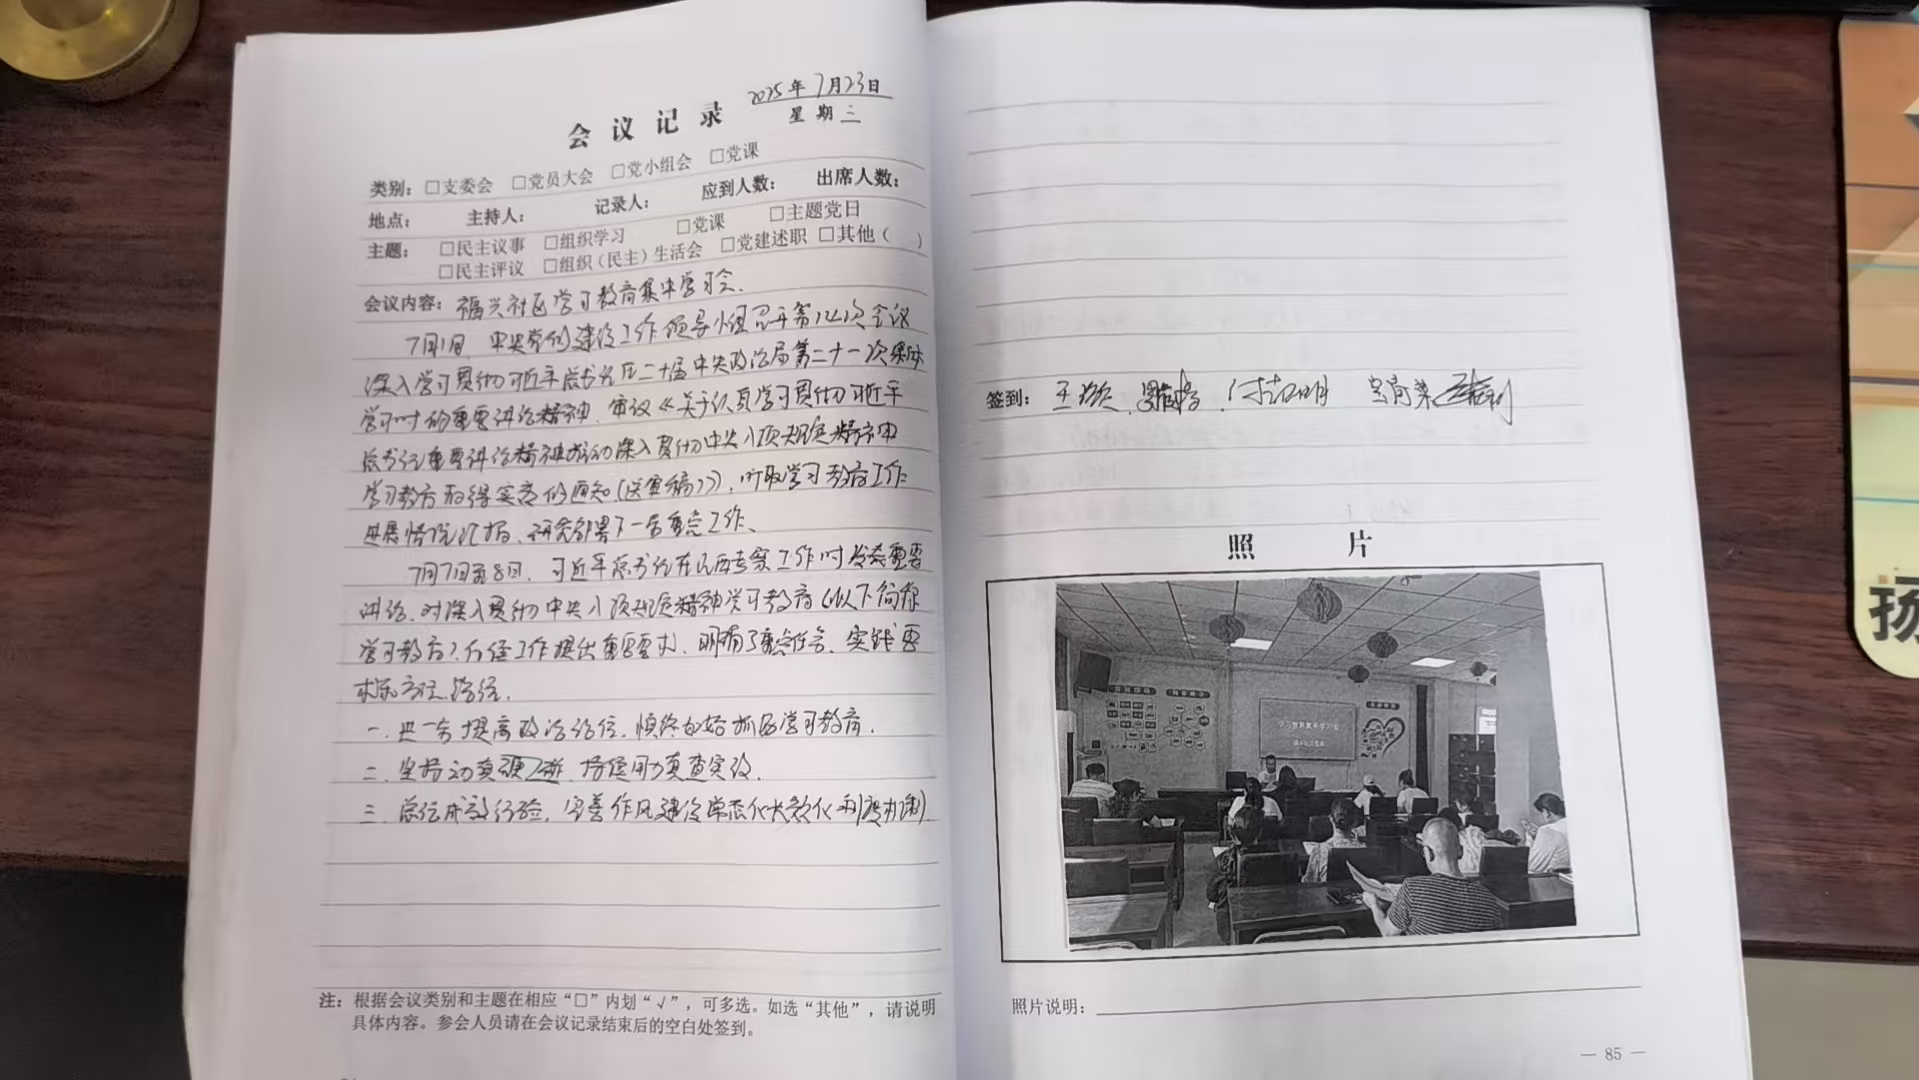 2025年7月23日
会议记录
星期三
类别：□支委会 □党员大会 □党小组会 □党课
地点： 主持人： 记录人： 应到人数： 出席人数：
主题： □民主议事 □组织学习 □党课 □主题党日
□民主评议 □组织（民主）生活会 □党建述职 □其他（ ）
会议内容：福兴社区学习教育集中学习会.
7月1日，中央党的建设工作领导小组召开第 次会议
深入学习贯彻习近平总书记在二十届中央政治局第二十一次集体
学习时的重要讲话精神，审议《关于认真学习贯彻习近平
总书记重要讲话精神推动深入贯彻中央八项规定精神
学习教育取得实效的通知（送审稿）》，听取学习教育工作
进展情况汇报，研究部署下一步重点工作、
7月7日至8日，习近平总书记在山西考察工作时发表重要
讲话，对深入贯彻中央八项规定精神学习教育（以下简称
学习教育）有关工作提出重要要求，明确了重点任务、实践要
求 方法 路径.
一、进一步提高政治站位，慎终如始抓好学习教育.
二、坚持动真碰硬，持续用力真查实改.
三、总结成效经验，完善作风建设常态化长效化制度机制.
注：根据会议类别和主题在相应“□”内划“√”，可多选。如选“其他”，请说明
具体内容。参会人员请在会议记录结束后的空白处签到。
签到：王
照片
学习教育集中学习会
照片说明：
— 85 —
扬